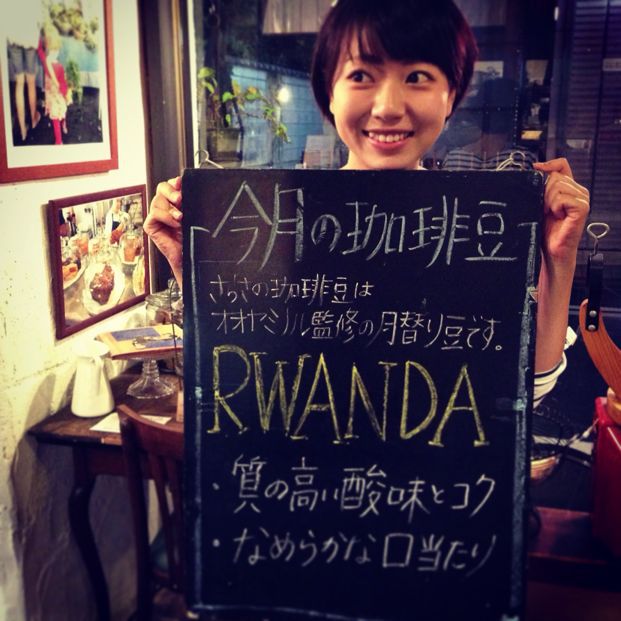 今月の珈琲豆
さっさの珈琲豆は
オオヤミノル監修の月替り豆です。
RWANDA
・質の高い酸味とコク
・なめらかな口当たり